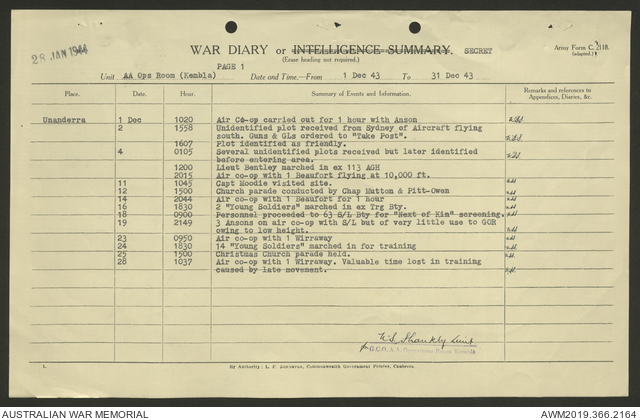 28 JAN 1944
WAR DIARY or INTELLIGENCE SUMMARY. SECRET
(Erase heading not required.)
Army Form C. 2118.
(adapted.)
PAGE 1
Unit AA Ops Room (Kembla) Date and Time.—From 1 Dec 43 To 31 Dec 43
Place. Date. Hour. Summary of Events and Information. Remarks and references to Appendices, Diaries, &c.
Unanderra 1 Dec 1020 Air Co-op carried out for 1 hour with Anson
2 1558 Unidentified plot received from Sydney of Aircraft flying
south. Guns & GLs ordered to "Take Post".
1607 Plot identified as friendly.
4 0105 Several unidentified plots received but later identified
before entering area.
1200 Lieut Bentley marched in ex 113 AGH
2015 Air co-op with 1 Beaufort flying at 10,000 ft.
11 1045 Capt Moodie visited site.
12 1500 Church parade conducted by Chap Mutton & Pitt-Owen
14 2044 Air co-op with 1 Beaufort for 1 hour
16 1830 2 "Young Soldiers" marched in ex Trg Bty.
18 0900 Personnel proceeded to 63 S/L Bty for "Next of Kin" screening.
19 2149 3 Ansons on air co-op with S/L but of very little use to GOR
owing to low height.
23 0950 Air co-op with 1 Wirraway
24 1830 14 "Young Soldiers" marched in for training
25 1500 Christmas Church parade held.
28 1037 Air co-op with 1 Wirraway. Valuable time lost in training
caused by late movement.
Shankly Lieut
1.
By Authority: L. F. Johnston, Commonwealth Government Printer, Canberra.
AUSTRALIAN WAR MEMORIAL
AWM2019.366.2164